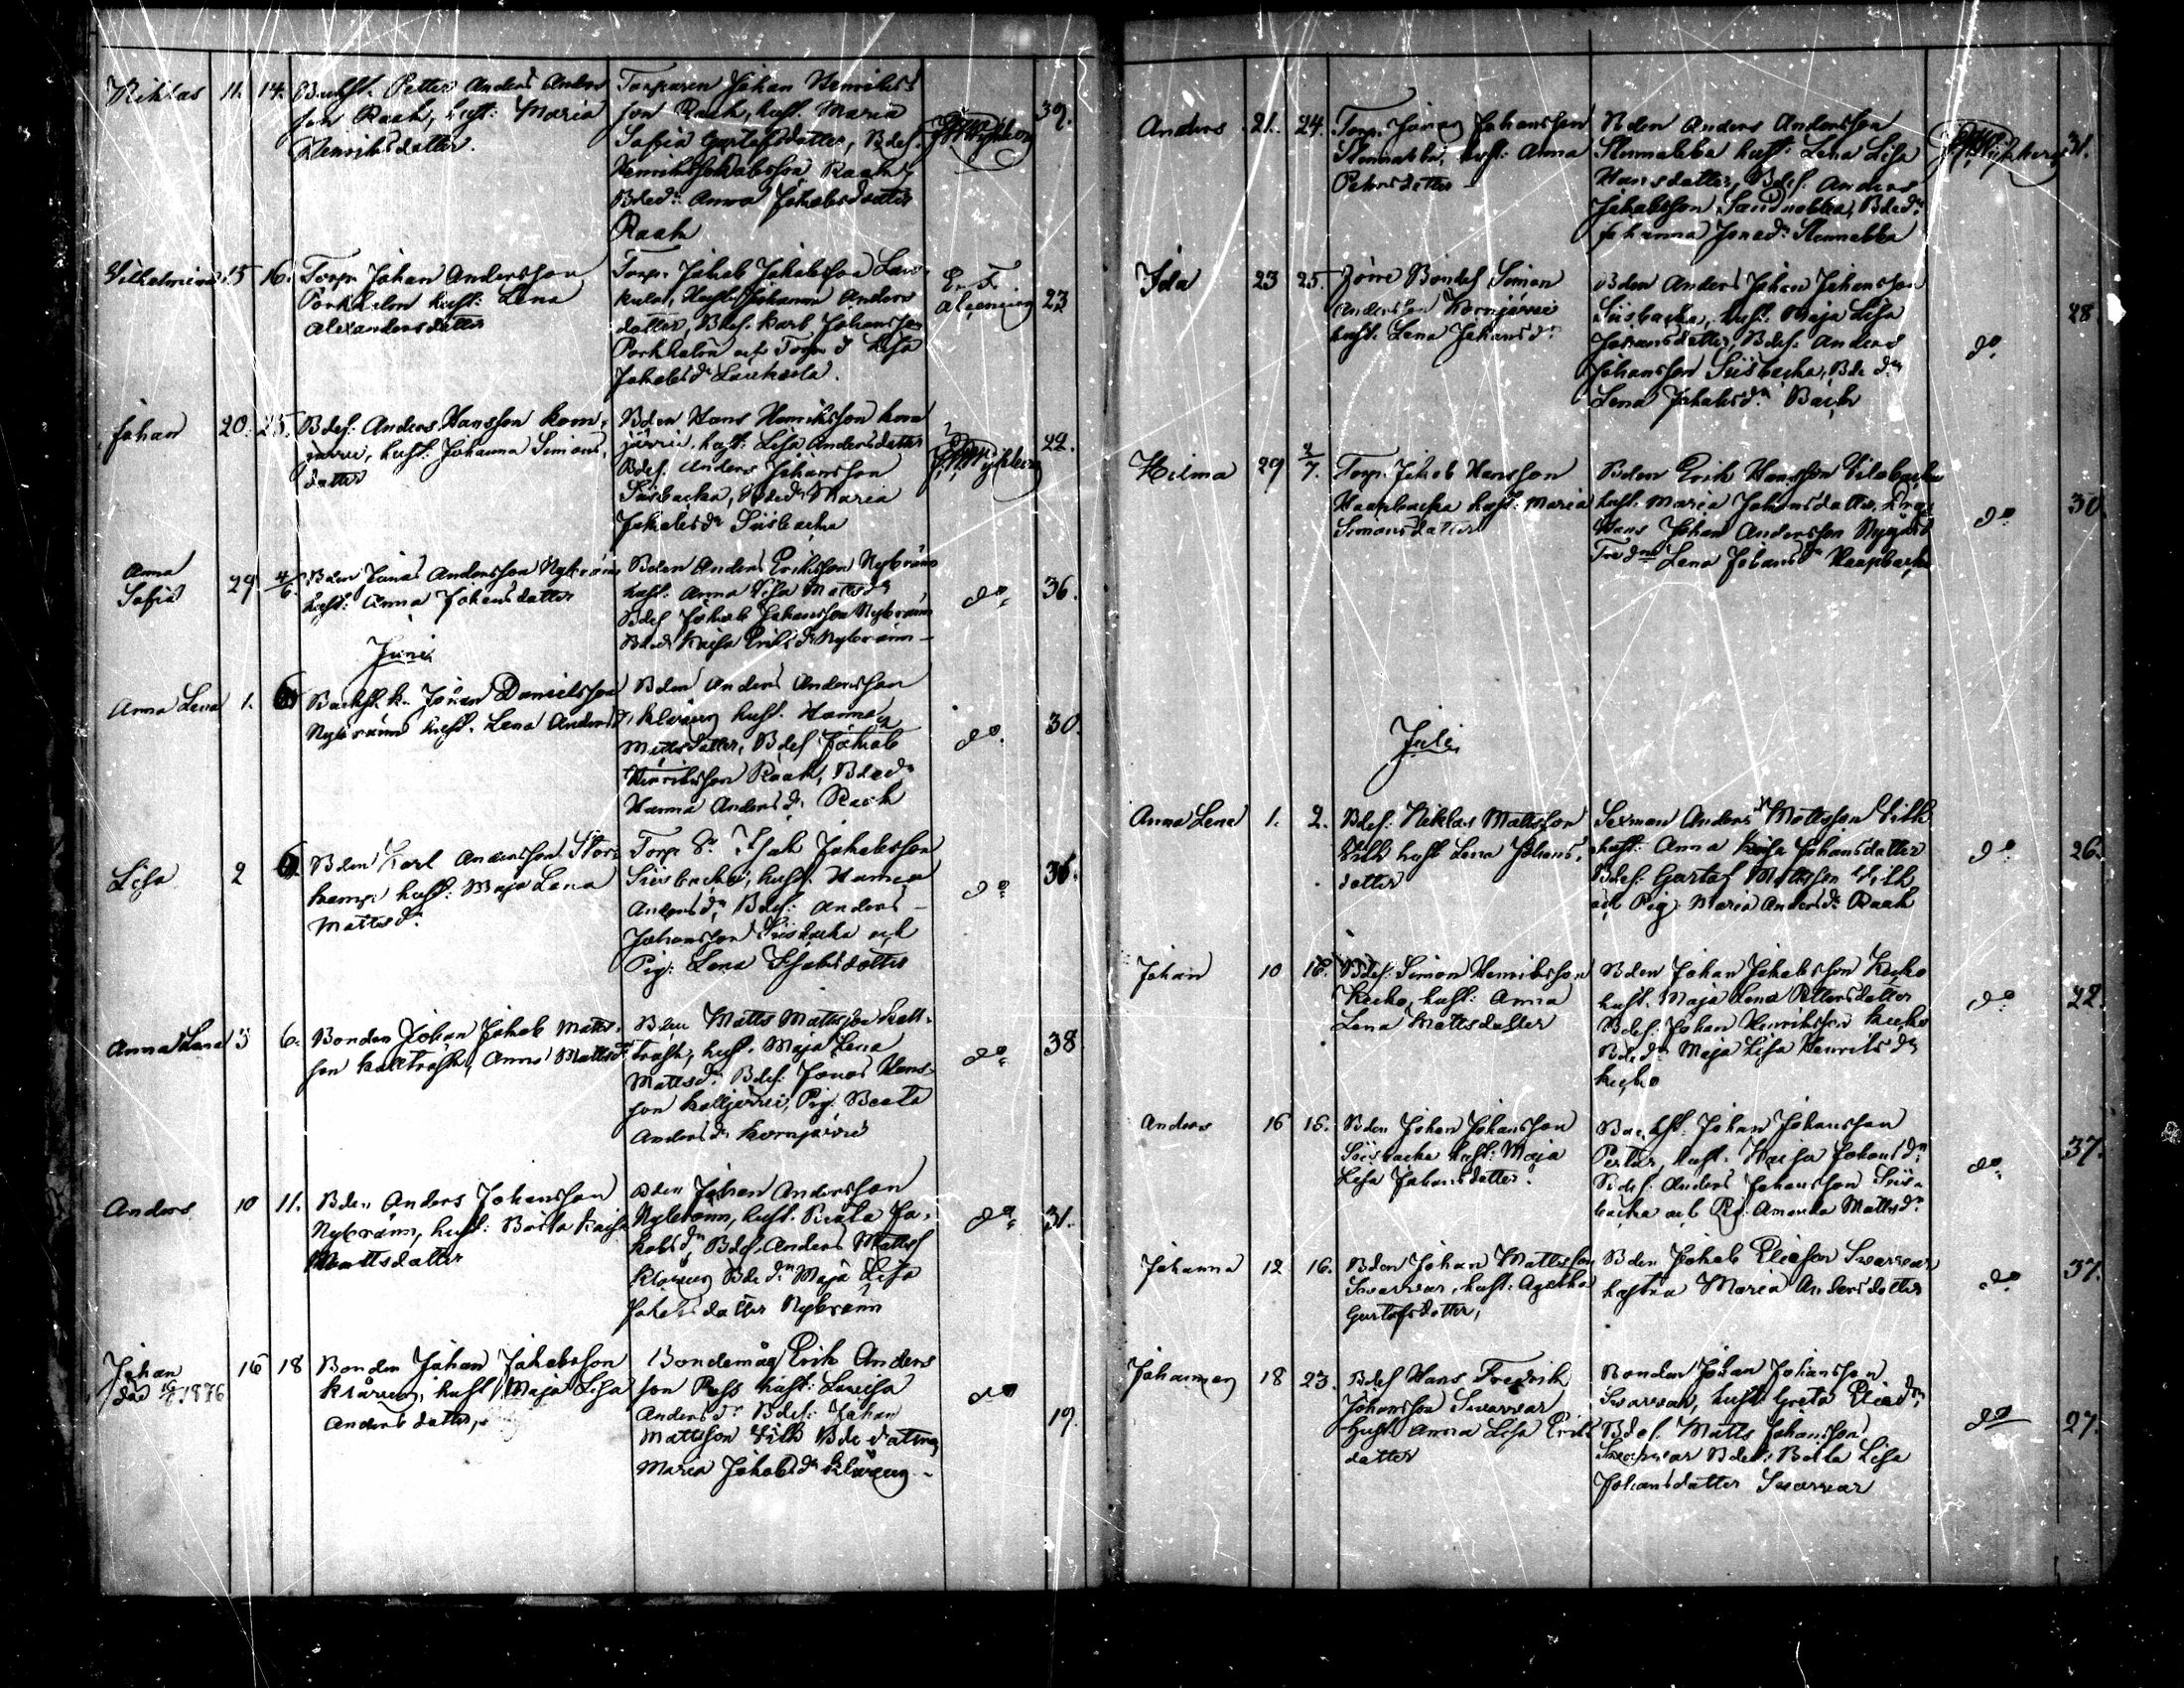 Niklas 11. 14. Backst. Petter Anders Anders
son Raak, hust: Maria
Henriksdotter.
Torparen Johan Henriks
son Raak, hust. Maria
Sofia Gustafsdotter, Bdes.
Henrik Jakobsson Raak,
Bdedr. Anna Jakobsdotter
Raak
39.
Vilhelmina 15 16. Torpn Johan Andersson
Porkholm hust: Lena
Alexandersdotter
Torpn Jakob Jakobsson Lau-
kula, Hust. Johanna Anders
dotter, Bdes. Karl Johansson
Porkholm och Torpn dr Lisa
Jakobsdr Laukula.
E. F.
Alcenius 23
Johan 20. 25. Bdes. Anders Hansson Korn-
järvi, hust: Johanna Simons-
dotter
Bden Hans Henriksson Korn
järvi, hust: Lisa Andersdotter
Bdes. Anders Johansson
Siisbacka, Bdedr Maria
Jakobsdr Siisbacka
22.
Anna
Sofia 29. 4/6. Bden Jonas Andersson Nybränn
hust: Anna Johansdotter
Bden Anders Eriksson Nybränn
hust. Anna Lisa Mattsdr
Bdes Jakob Johansson Nybränn
Bdedr Kajsa Eriksdr Nybränn
do 36.
Juni
Anna Lena 1. 6 Backst. k. Johan Danielsson
Nybränn hust. Lena Andersdr
Bden Anders Andersson
Klåvus hust. Hanna
Mattsdotter, Bdes Jakob
Henriksson Raak, Bdedr
Hanna Andersdr Raak
do. 30.
Lisa 2 6 Bden Karl Andersson Stor
kamp hust: Maja Lena
Mattsdr
Torpr Sn Isak Jakobsson
Siisbacka, hust. Hanna
Andersdr, Bdes: Anders
Johansson Siisbacka och
Pig: Lena Isaksdotter
do 36.
Anna Lena 3 6. Bonden Johan Jakob Matts-
son Kallträsk, Anna Mattsdr
Bden Matts Mattsson Kall-
träsk, hust. Maja Lena
Mattsdr. Bdes: Jonas Hans-
son Kalljärvi, Pig. Beata
Andersdr Kornjärvi
do 38
Anders 10 11. Bden Anders Johansson
Nybränn, hust: Brita Kajsa
Mattsdotter
Bden Johan Andersson
Nybränn, hust. Beata Ja-
kobsdr, Bdes. Anders Mattss
Klåvus Bdedr Maja Lisa
Jakobsdotter Nybränn
do 31.
Johan
död 1876 16 18 Bonden Johan Jakobsson
Klåvus, hust Maja Lisa
Andersdotter,
Bondemåg Erik Anders
son Ross hust: Lovisa
Andersdr Bdes: Johan
Mattsson Vilk Bdedotren
Maria Jakobsdr Klåvus
do 19.
Anders 21. 24. Torp. Jonas Johansson
Stennabba, hust: Anna
Petersdotter
Bden Anders Andersson
Stennabba hust: Lena Lisa
Hansdotter, Bdes. Anders
Jakobsson Sandnabba, Bdedr
Johanna Jonasdr Stennabba
31.
Ida 23 25. Förre Bondes Simon
Andersson Kornjärvi
hust. Lena Johansdr
Bden Anders Johan Johansson
Siisbacka, hust. Maja Lisa
Johansdotter, Bdes. Anders
Johansson Siisbacka, Bdedr
Lena Jakobsdr Back
do 28
Hilma 29 2/7. Torp. Jakob Hansson
Haapbacka hust: Maria
Simonsdotter
Bden Erik Hansson Vilobacka
hust. Maria Johansdotter, Dräng
Hans Johan Andersson Nygård
Lena Johansdr Haapbacka
do 30
Juli
Anna Lena 1. 2. Bdes: Niklas Mattsson
Vilk hust Lena Johans-
dotter
Sexman Anders Mattsson Vilk
hust: Anna Kajsa Johansdotter
Bdes. Gustaf Mattsson Vilk
och Pig. Maria Andersdr Raak
do 26.
Johan 10 16. Bdes. Simon Henriksson
Kecko, hust: Anna
Lena Mattsdotter
Bden Johan Jakobsson Kecko
hust. Maja Lena Pettersdotter
Bdes. Johan Henriksson Kecko
Bdedr Maja Lisa Henriksdr
Kecko
do 22.
Anders 16 16. Bden Johan Johansson
Siisbacka hust: Maja
Lisa Johansdotter.
Backst. Johan Johansson
hust. Kajsa Johansdr
Bdes. Anders Johansson Siis-
backa och Pig. Amanda Mattsdr
do 37.
Johanna 12 16. Bden Johan Mattsson
Swarvar, hust: Agatha
Gustafsdotter,
Bden Jakob Eliasson Swarvar
hustru Maria Andersdotter
do 37.
Johannes 18 23. Bdes Hans Fredrik
Johansson Swarvar
Hust Anna Lisa Eriks
dotter
Bonden Johan Johansson
Swarvar, hust Greta Eliasdr
Bdes. Matts Johansson
Swarvar Bdedr Brita Lisa
Johansdotter Swarvar
do 27.